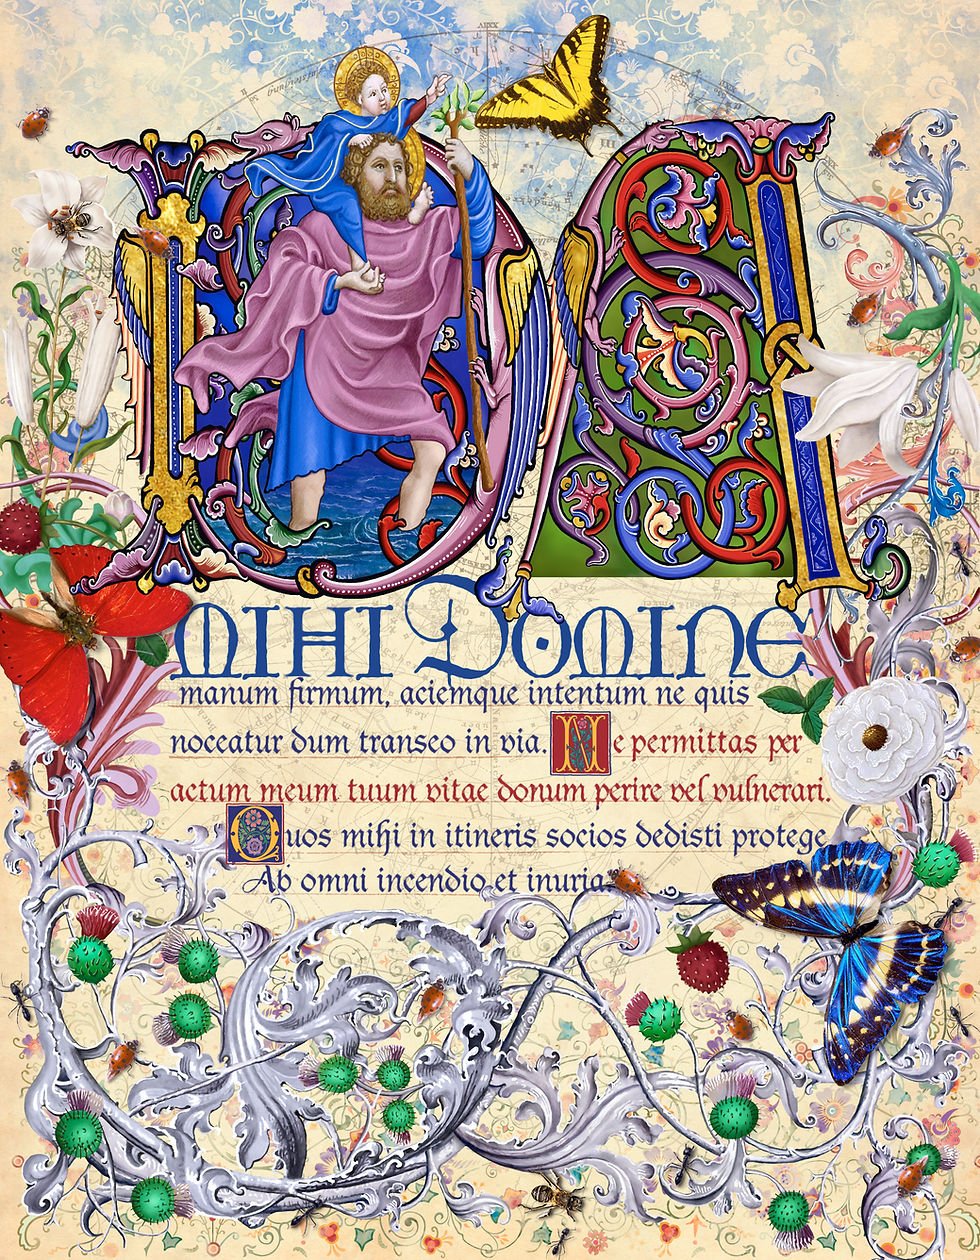 DA
MIHI DOMINE
manum firmum, aciemque intentum ne quis
noceatur dum transeo in via. Ne permittas per
actum meum tuum vitae donum perire vel vulnerari.
Quos mihi in itineris socios dedisti protege
Ab omni incendio et inuria.